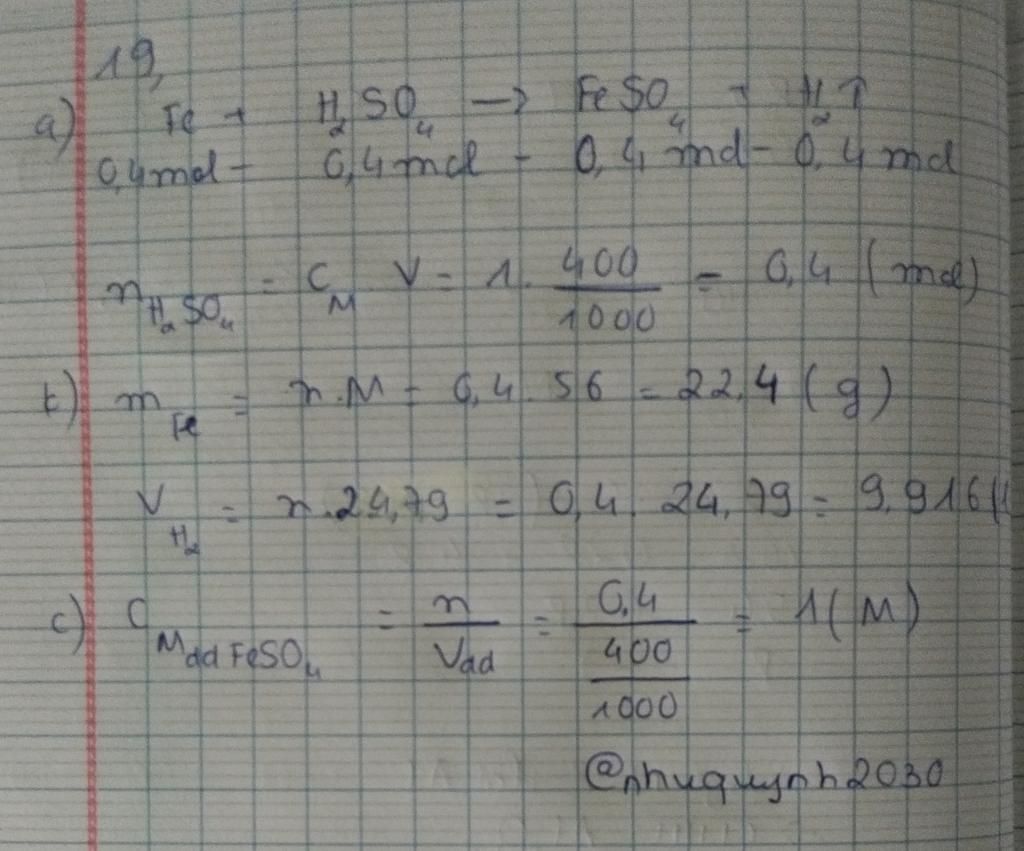 19,
a) Fe + H₂SO₄ → FeSO₄ + H₂↑
0,4mol - 0,4mol - 0,4mol - 0,4mol
n H₂SO₄ = C M V = 1. 400/1000 = 0,4 (mol)
b) m Fe = n.M = 0,4.56 = 22,4 (g)
V H₂ = n.24,79 = 0,4.24,79 = 9,916 (l
c) C M dd FeSO₄ = n/Vdd = 0,4/(400/1000) = 1(M)
@nhuquynh2030